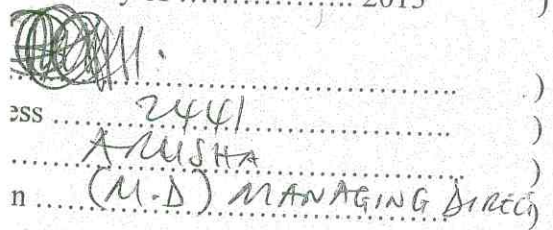 2013 )
)
ess 2441 )
ARUSHA )
n (M.D) MANAGING DIREC)